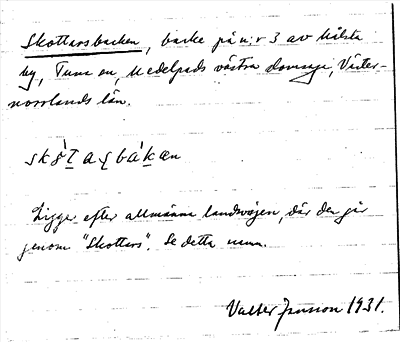 Skottarsbacken, backe på n:r 3 av
by, Tuna sn, Medelpads västra domsaga, Väster-
norrlands län.
Ligger efter allmänna landsvägen, där den går
genom "Skottars". Se detta namn.
Valter Jansson 1931.